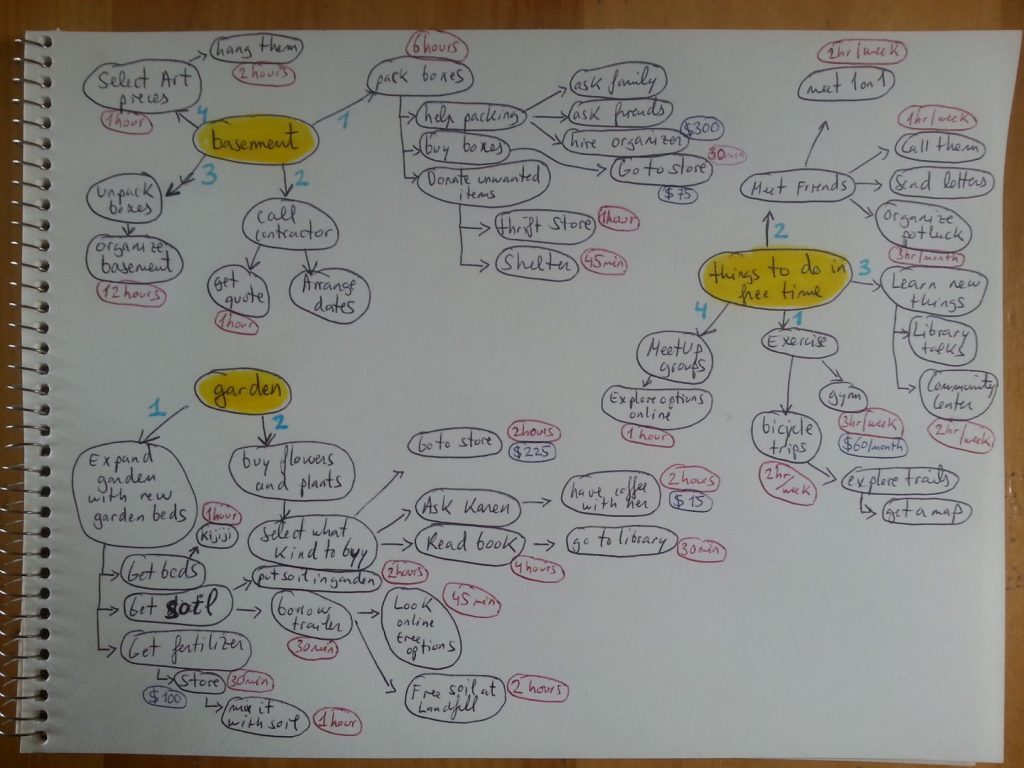 hang them
2 hours
Select Art
pieces
1 hour
4
basement
1
6 hours
pack boxes
help packing
ask family
ask friends
hire organizer
$300
buy boxes
Go to store
30 min
$75
Donate unwanted
items
thrift store
1 hour
Shelter
45 min
3
unpack
boxes
organize
basement
12 hours
2
call
contractor
get
quote
1 hour
Arrange
dates
2hr/week
meet 1 on 1
1hr/week
Call them
Meet Friends
Send letters
Organize
potluck
3hr/month
2
things to do in
free time
3
Learn new
things
Library
talks
Community
Center
2hr/week
4
MeetUp
groups
Explore options
online
1 hour
1
Exercise
gym
3hr/week
$60/month
bicycle
trips
2hr/
week
explore trails
get a map
garden
1
Expand
garden
with new
garden beds
Get beds
Kijiji
1 hour
Get soil
put soil in garden
2 hours
borrow
trailer
30 min
Look
online
free
options
45 min
Free soil at
Landfill
2 hours
Get fertilizer
Store
30 min
$100
mix it
with soil
1 hour
2
buy flowers
and plants
Select what
kind to buy
Go to store
2 hours
$225
Ask Karen
have coffee
with her
2 hours
$15
Read book
4 hours
go to library
30 min